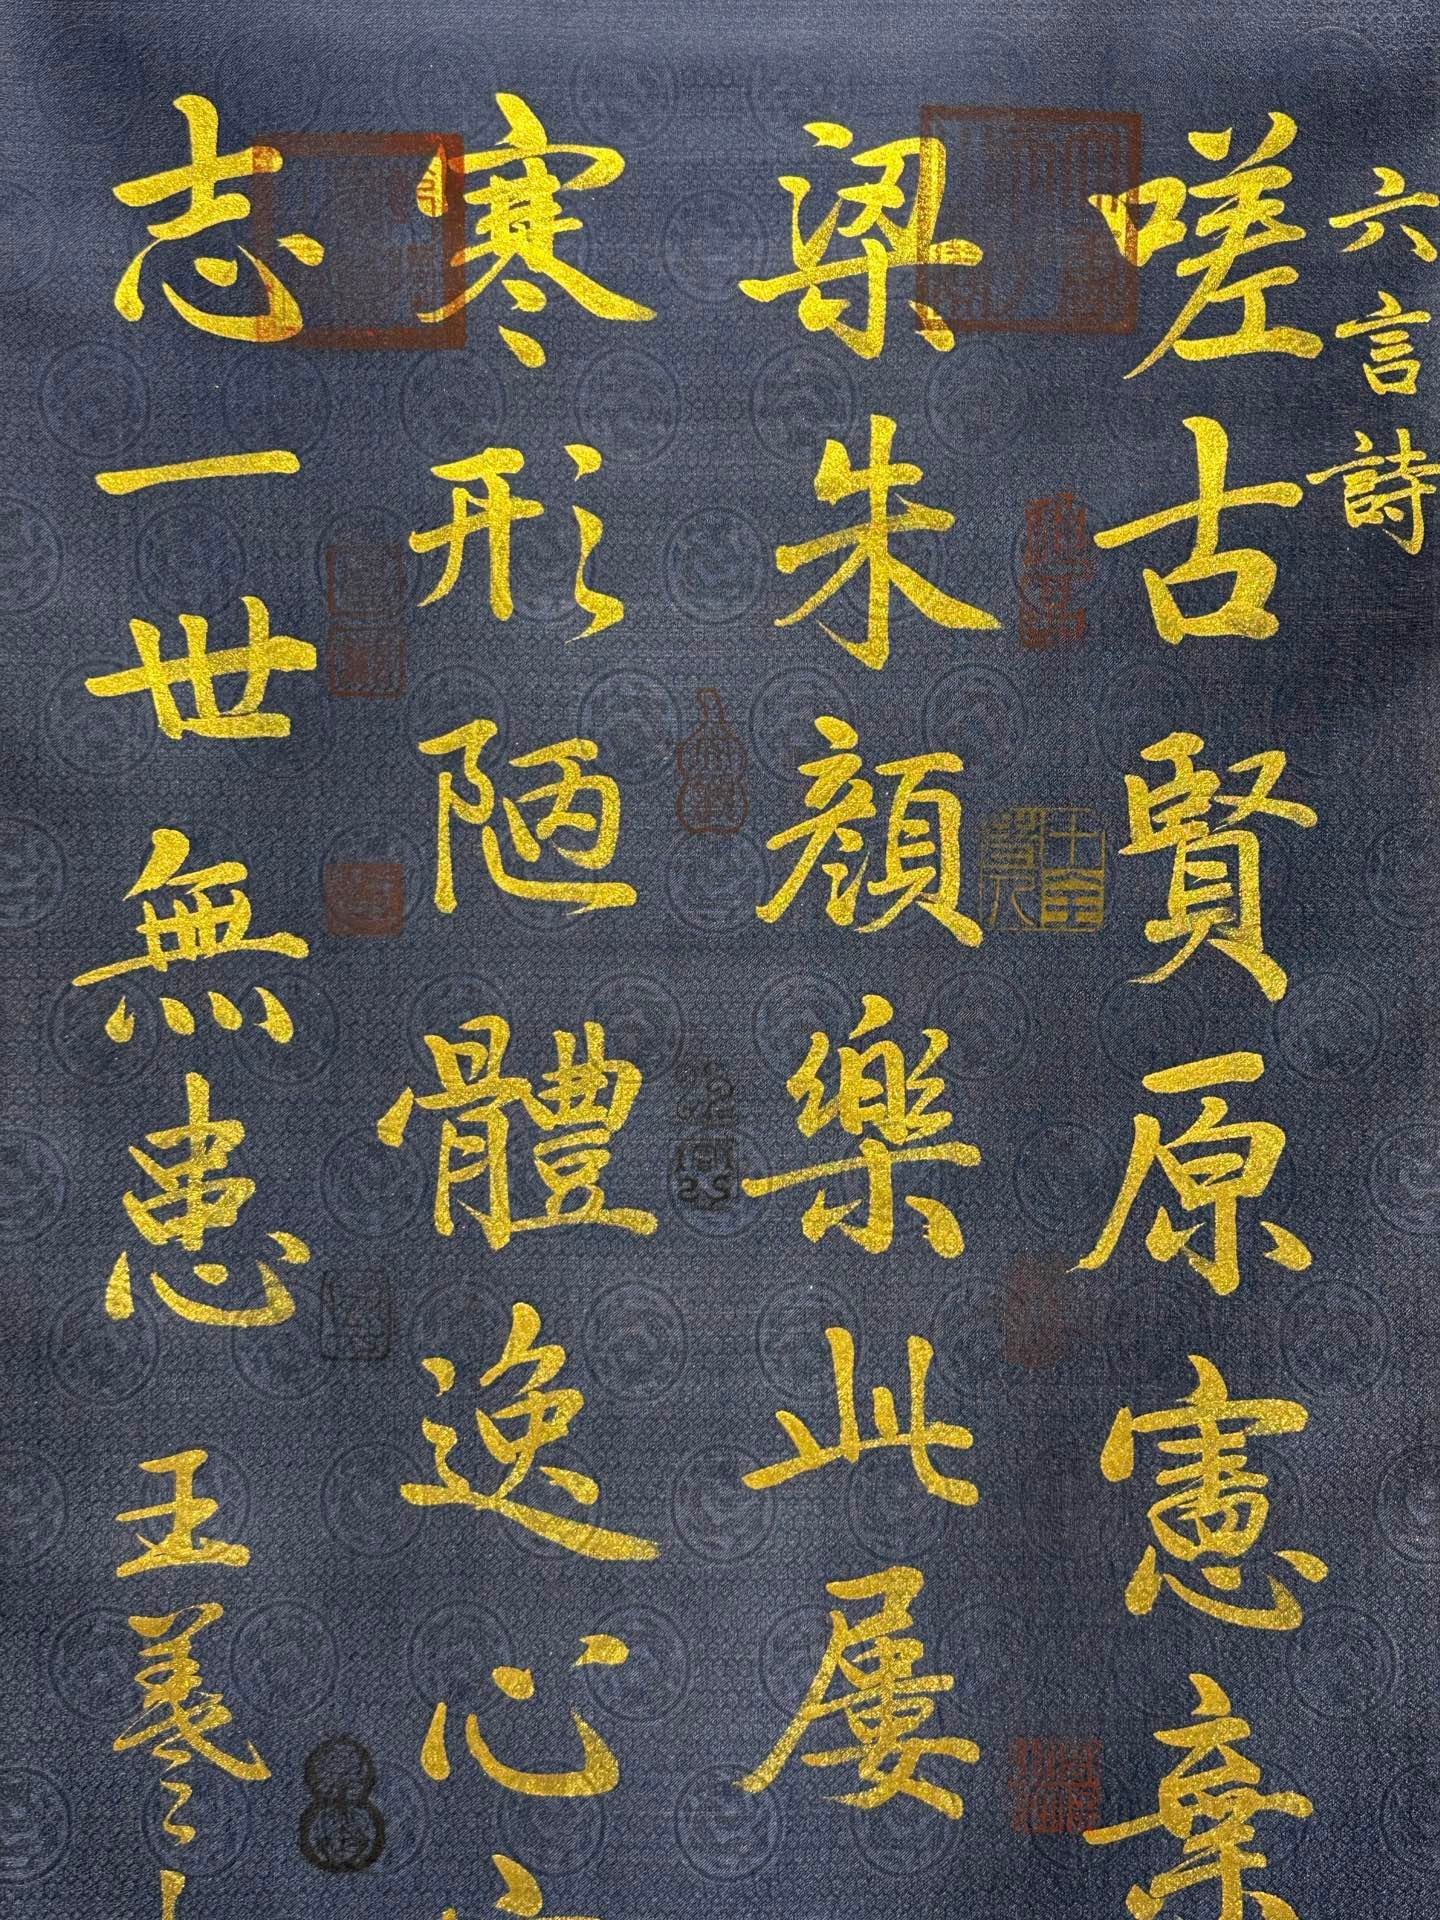 六言詩
嗟古賢原憲棄
梁朱顏樂此屢
寒形陋體逸心
志一世無患王羲之